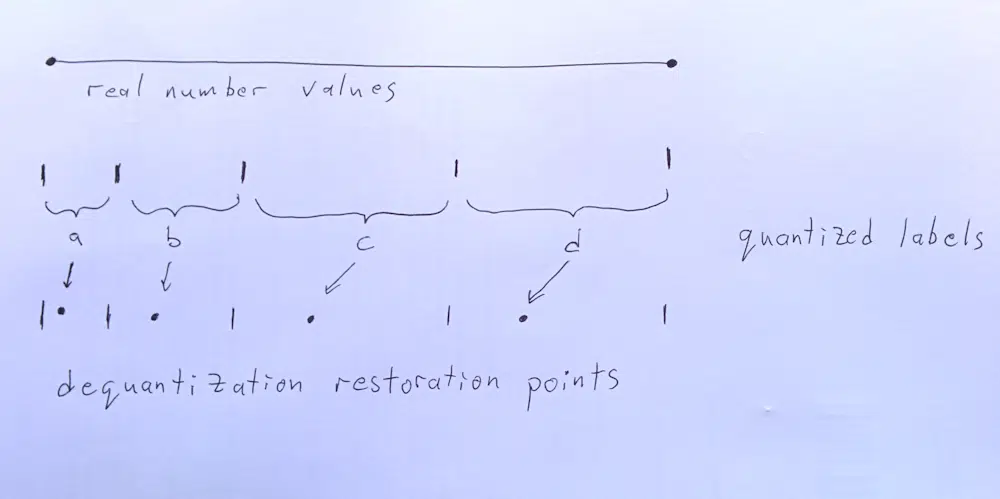 real number values
a b c d
quantized labels
dequantization restoration points